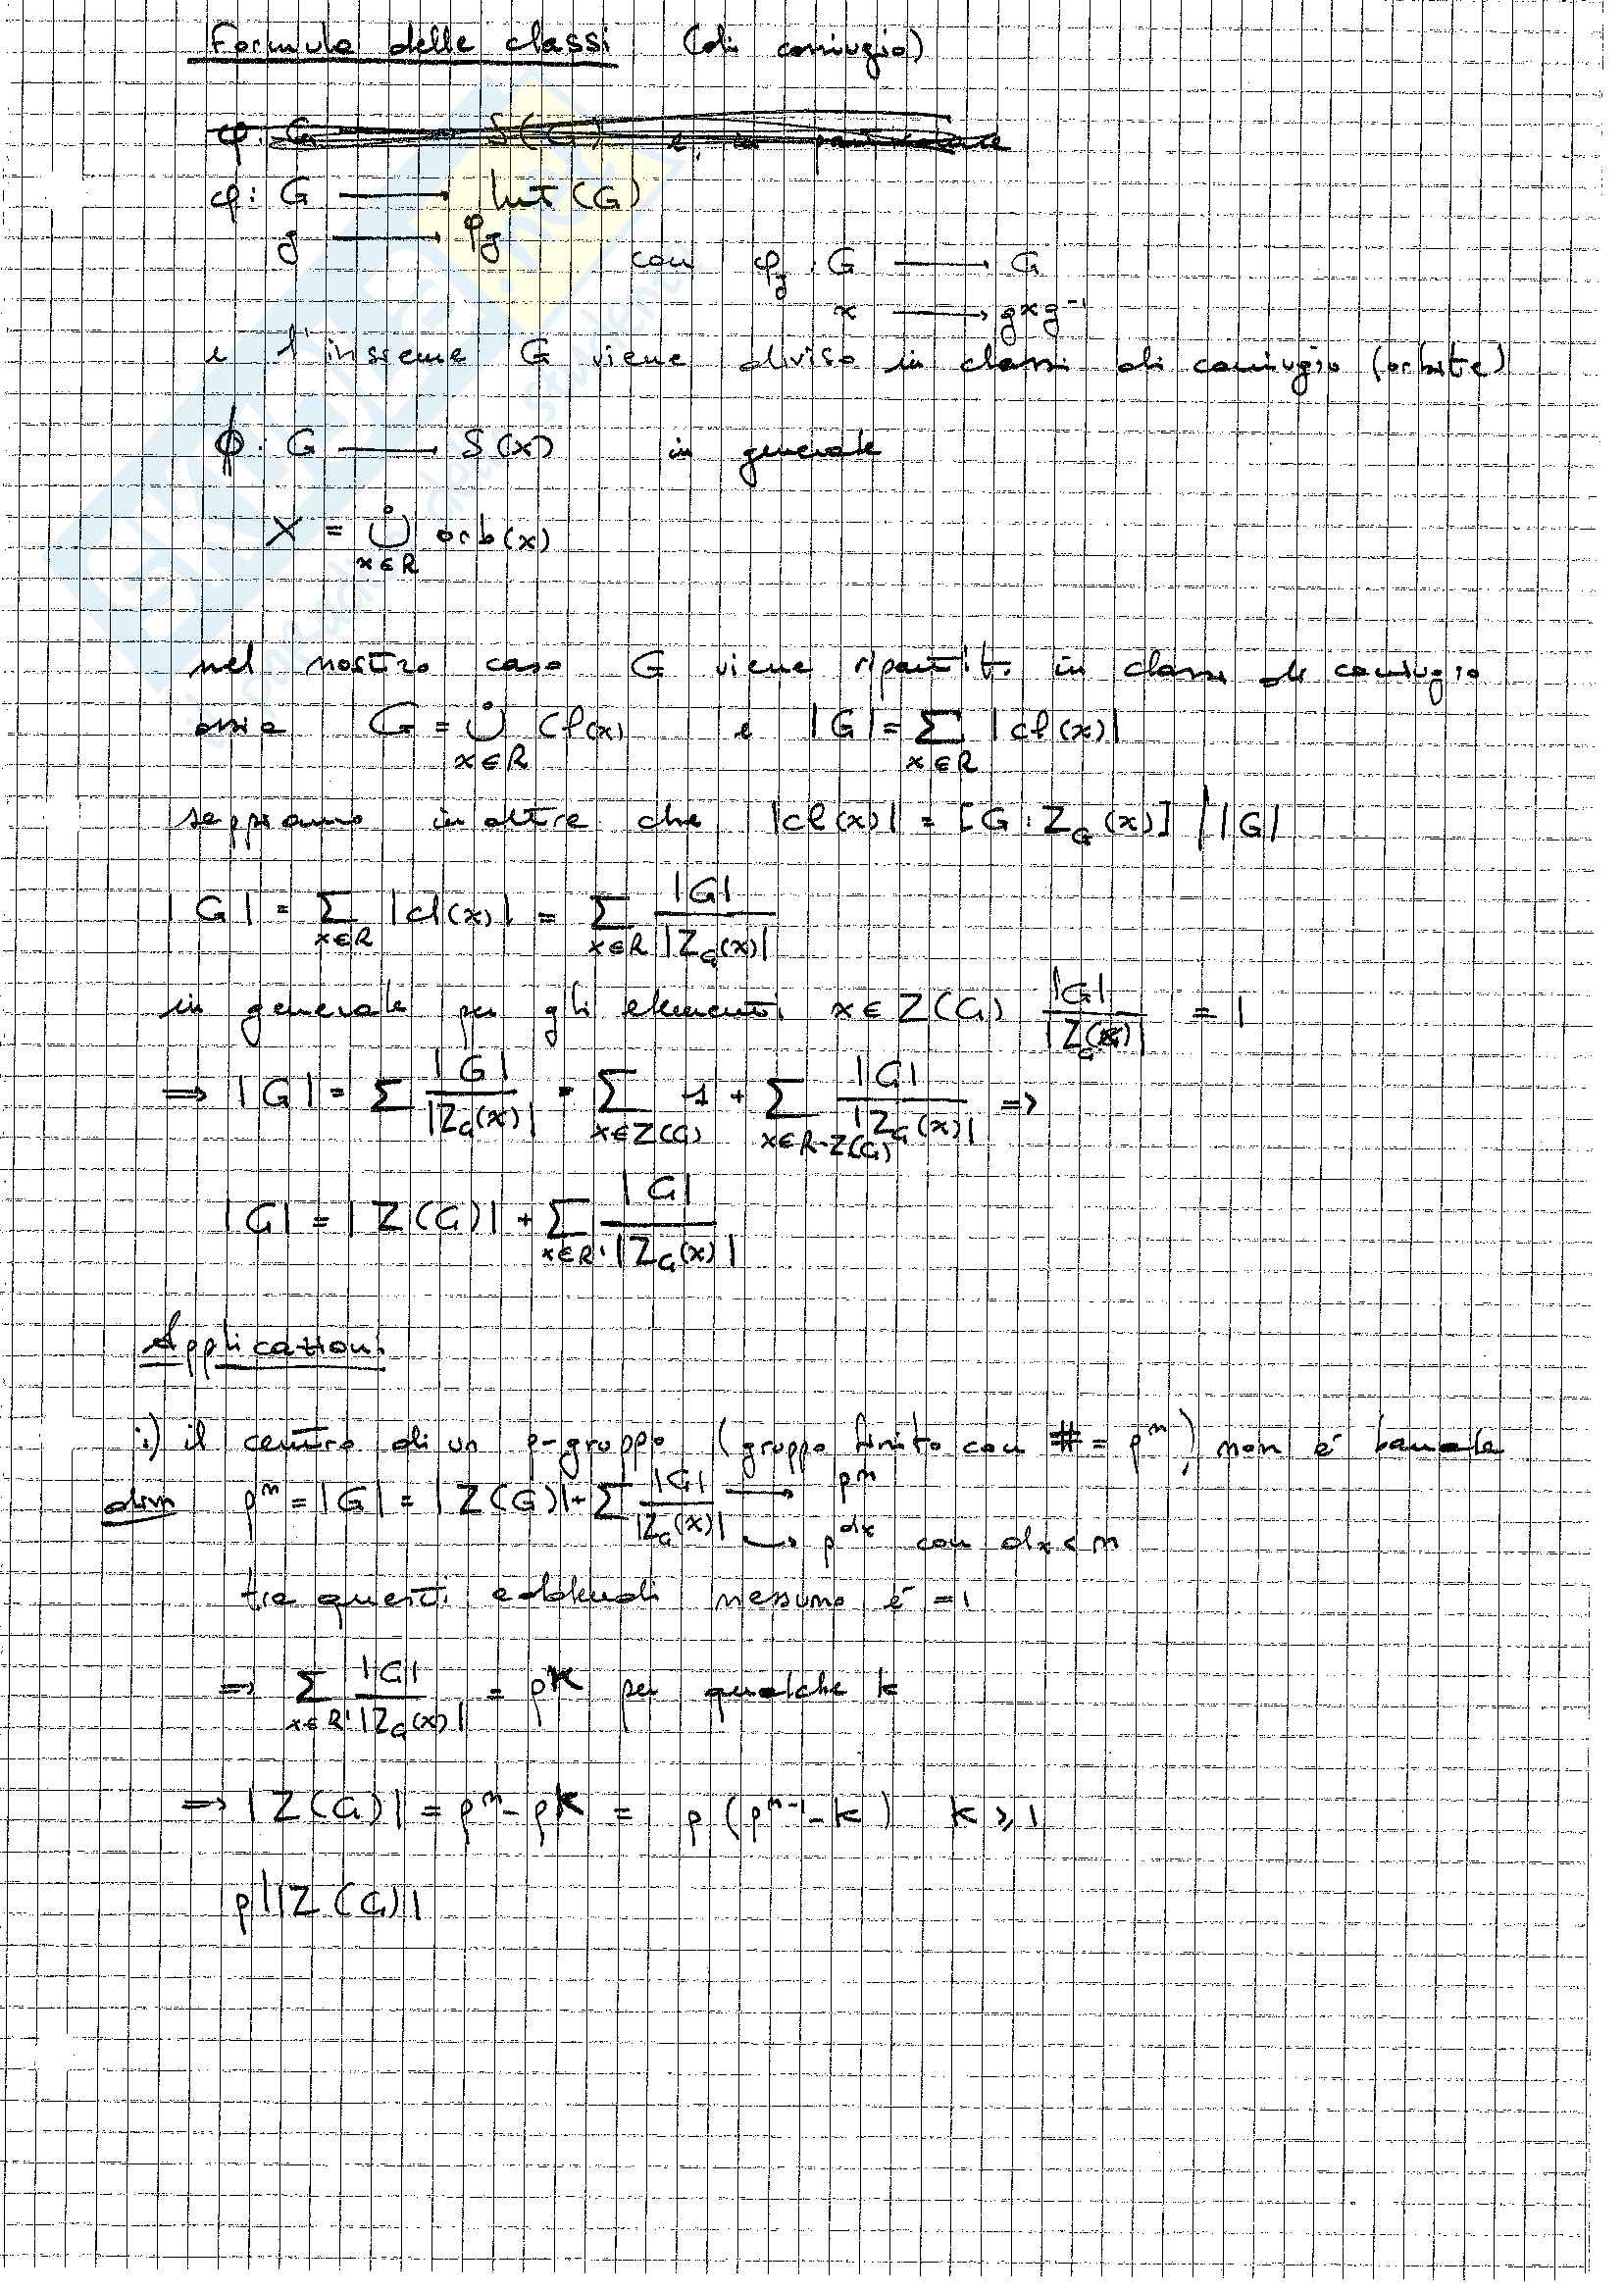 Formula delle classi (di coniugio)
φ: G → S(G) e, in particolare
φ: G → Int(G)
g → φg
con φg : G → G
x → gxg⁻¹
e l'insieme G viene diviso in classi di coniugio (orbite)
ϕ: G → S(X) in generale
X = ⋃̇ orb(x)
x∈R
nel nostro caso G viene ripartito in classi di coniugio
ossia G = ⋃̇ Cl(x) e |G| = ∑ |cl(x)|
x∈R x∈R
sappiamo inoltre che |cl(x)| = [G : Z_G(x)] | |G|
|G| = ∑_{x∈R} |cl(x)| = ∑_{x∈R} |G| / |Z_G(x)|
in generale per gli elementi x∈Z(G) |G| / |Z_G(x)| = 1
⇒ |G| = ∑ |G| / |Z_G(x)| = ∑_{x∈Z(G)} 1 + ∑_{x∈R-Z(G)} |G| / |Z_G(x)| ⇒
|G| = |Z(G)| + ∑_{x∈R'} |G| / |Z_G(x)|
Applicazioni
i) il centro di un p-gruppo (gruppo finito con # = pⁿ), non è banale
dim pⁿ = |G| = |Z(G)| + ∑ |G| / |Z_G(x)| → pⁿ
↪ p^{dx} con dx < n
tra questi addendi nessuno è = 1
⇒ ∑_{x∈R'} |G| / |Z_G(x)| = pk per qualche k
⇒ |Z(G)| = pⁿ - pk = p (pⁿ⁻¹ - k) k ⩾ 1
p | |Z(G)|